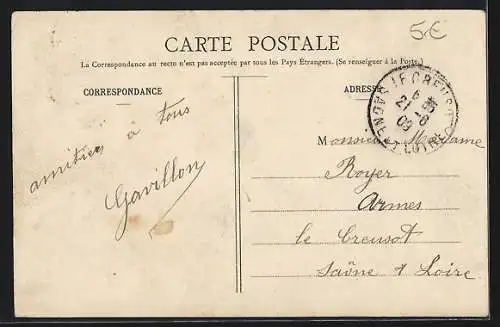 5€
CARTE POSTALE
La Correspondance au recto n'en pas acceptée par tous les Pays Étrangers. (Se renseigner à la Poste.)
CORRESPONDANCE
ADRESSE
LE CREUSOT
SAÔNE-ET-LOIRE
21 -8
09
amitiés à tous
Gavillon
Monsieur Madame
Royer
Armes
le Creusot
Saône & Loire